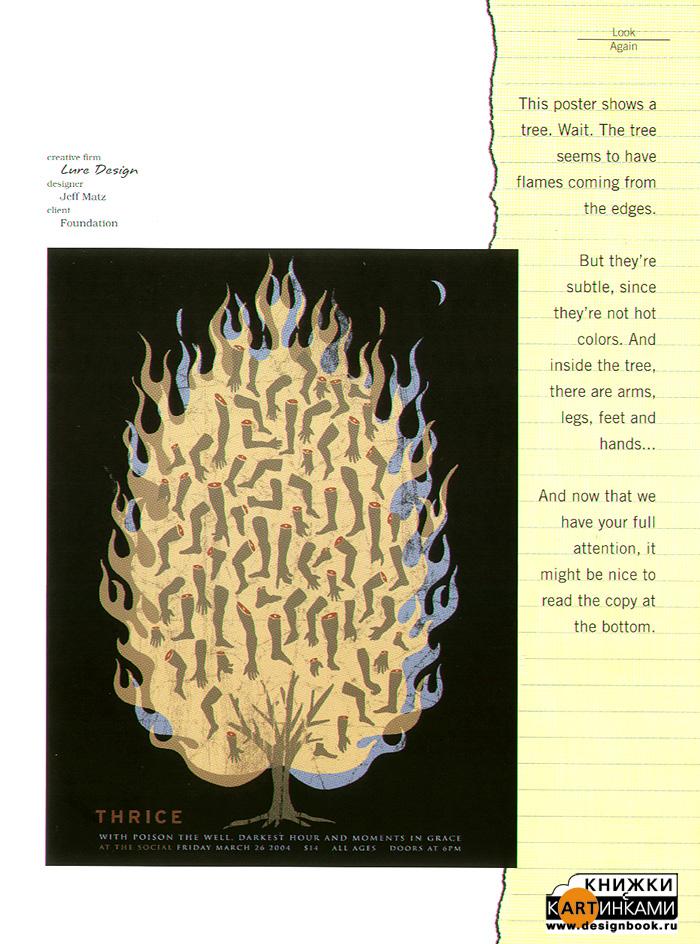 Look
Again
This poster shows a
tree. Wait. The tree
seems to have
flames coming from
the edges.
But they're
subtle, since
they're not hot
colors. And
inside the tree,
there are arms,
legs, feet and
hands...
And now that we
have your full
attention, it
might be nice to
read the copy at
the bottom.
creative firm
Lure Design
designer
Jeff Matz
client
Foundation
THRICE
WITH POISON THE WELL, DARKEST HOUR AND MOMENTS IN GRACE
AT THE SOCIAL FRIDAY MARCH 26 2004 $14 ALL AGES DOORS AT 6PM
КНИЖКИ
С
КАRTИНКАМИ
www.designbook.ru